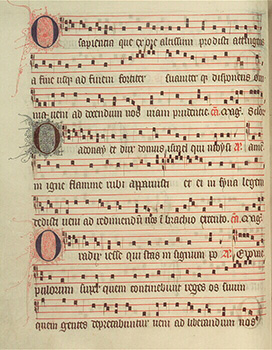 O sapientia que ex ore altissimi prodisti attingens
a fine usq ad finem fortiter suauiter q disponens
ueni ad docendum nos uiam prudentie
O adonay et dux domus isrl qui
in igne flamme rubi apparuisti et ei in syna legem
dedisti ueni ad redimendū nos ī brachio extento
O radix iesse qui stas in signum po
pulorum super quem continebunt reges os suum
quem gentes deprecabuntur ueni ad liberandum nos